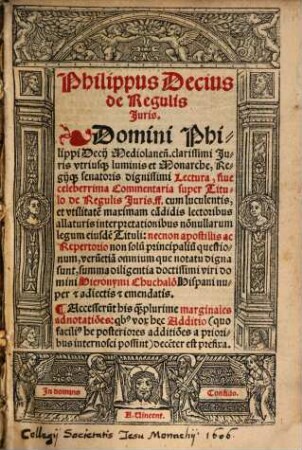 Philippus Decius
de Regulis
Juris.
Domini Phi-
lippi Decij Mediolaneñ. clarissimi Ju-
ris vtriusqz luminis et Monarche, Re-
gijqz senatoris dignissimi Lectura, siue
celeberrima Commentaria super Titu-
lo de Regulis Juris. ff. cum luculentis,
et vtilitatē maximam cādidis lectoribus
allaturis interpretationibus nōnullarum
legum eiusdē Tituli: necnon apostillis ac
Repertorio non solū principaliū questio-
num, verūetiā omnium que notatu digna
sunt, summa diligentia doctissimi viri do-
mini Hieronymi Chuchalō Hispani nu-
per & adiectis & emendatis.
¶ Accesserūt his q̄plurime marginales
adnotatiōes: qbꝰ vox hec Additio (quo
facilꝰ be posteriores additiōes a priori-
bus internosci possint) decēter est prefixa.
In domino
Confido.
B. Vincent.
Collegij Societatis Iesu Monachij 1606.